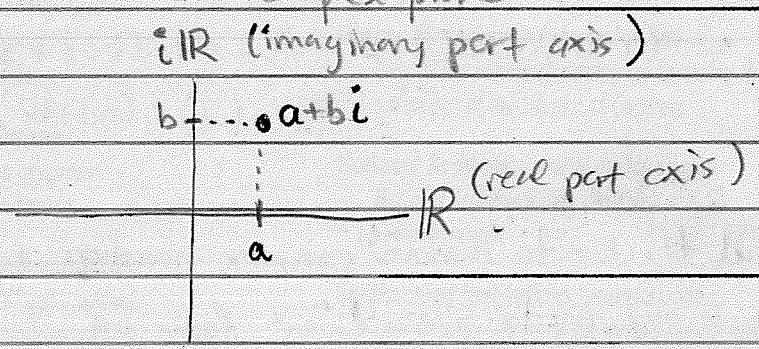 iℝ (imaginary part axis)
b a+bi
ℝ (real part axis)
a